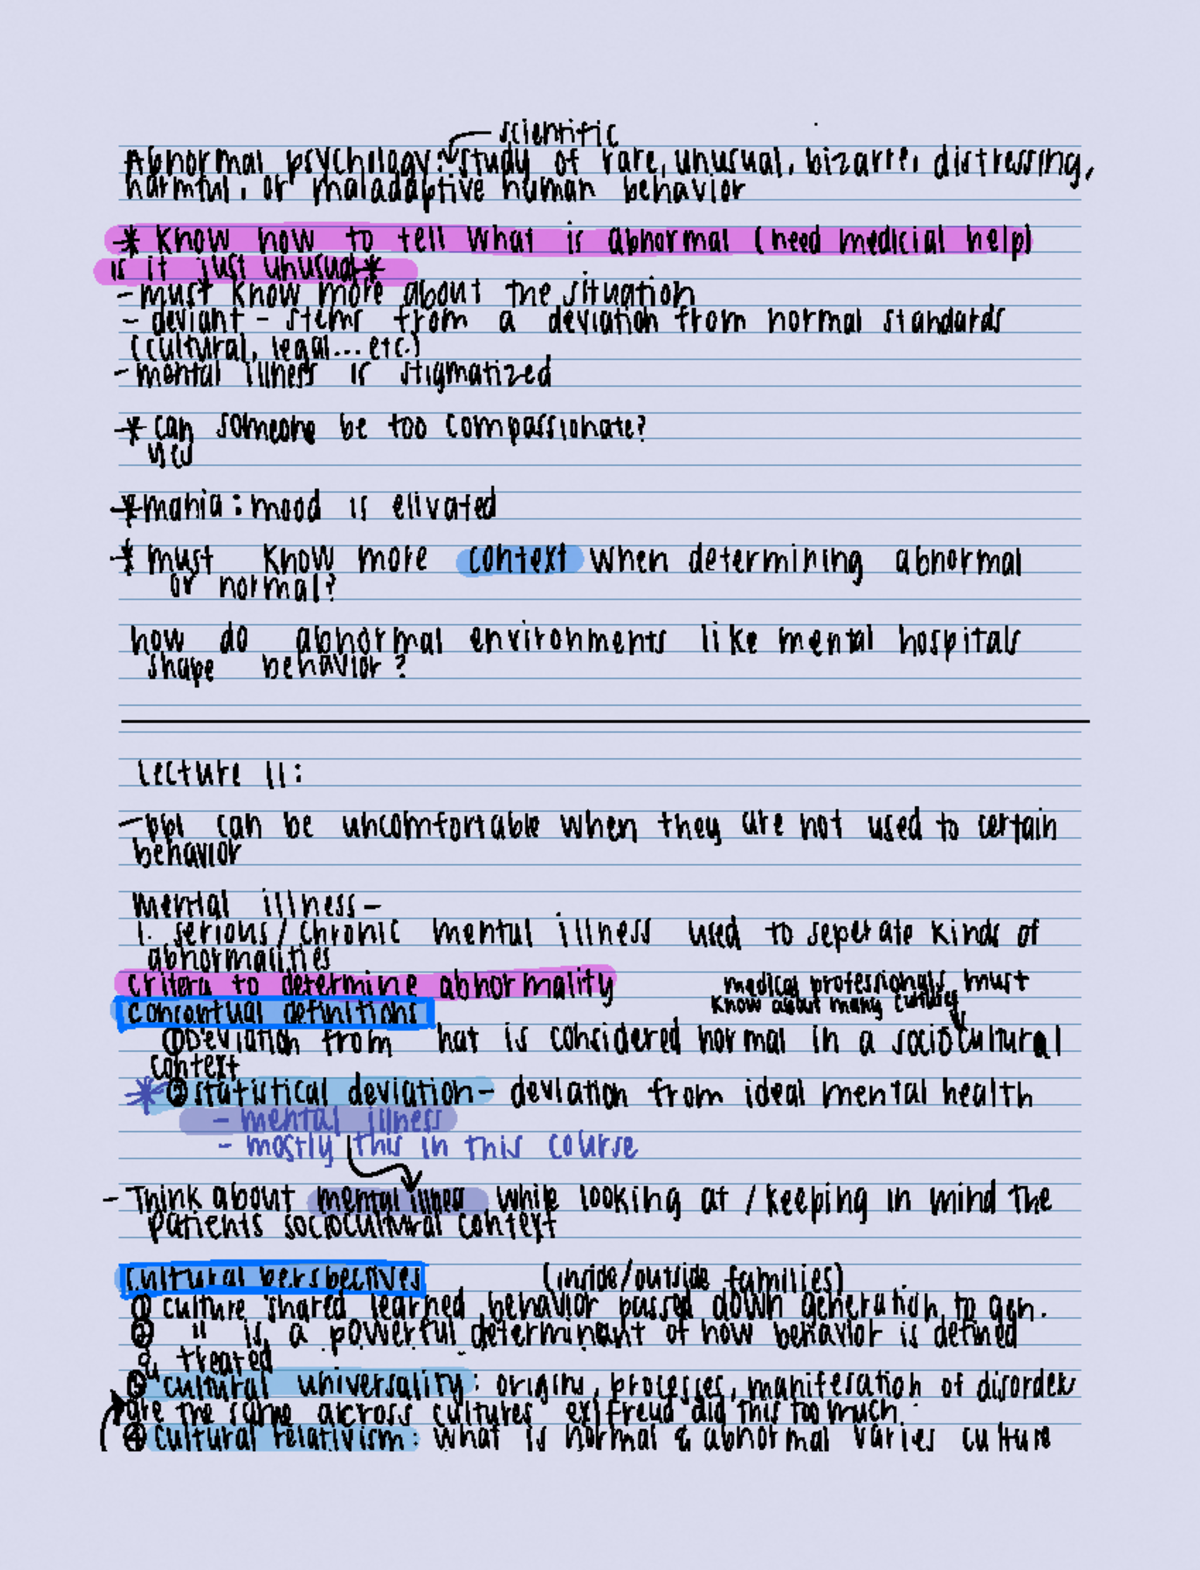 scientific
Abnormal psychology: study of rare, unusual, bizarre, distressing,
harmful, or maladaptive human behavior
* Know how to tell what is abnormal (need medicial help)
is it just unusual *
- must know more about the situation
- deviant - stems from a deviation from normal standards
(cultural, legal... etc.)
- mental illness is stigmatized
* can someone be too compassionate?
yes
* mania: mood is elivated
* must know more context when determining abnormal
or normal?
how do abnormal environments like mental hospitals
shape behavior?
Lecture 11:
- ppl can be uncomfortable when they are not used to certain
behavior
mental illness-
1. serious/chronic mental illness used to seperate kinds of
abnormalities
critera to determine abnormality
medical professionals must
know about many cultures
conceptual definitions
① Deviation from hat is considered normal in a sociocultural
context
* ② statistical deviation - deviation from ideal mental health
- mental illness
- mostly this in this course
- Think about mental illness while looking at / keeping in mind the
patients sociocultural context
cultural perspectives (inside/outside families)
① culture shared learned behavior passed down generation to gen.
② " is a powerful determinant of how behavior is defined
& treated
③ cultural universality: origins, processes, manifesation of disorder
are the same across cultures ex) Freud did this too much.
④ cultural relativism: what is normal & abnormal varies culture